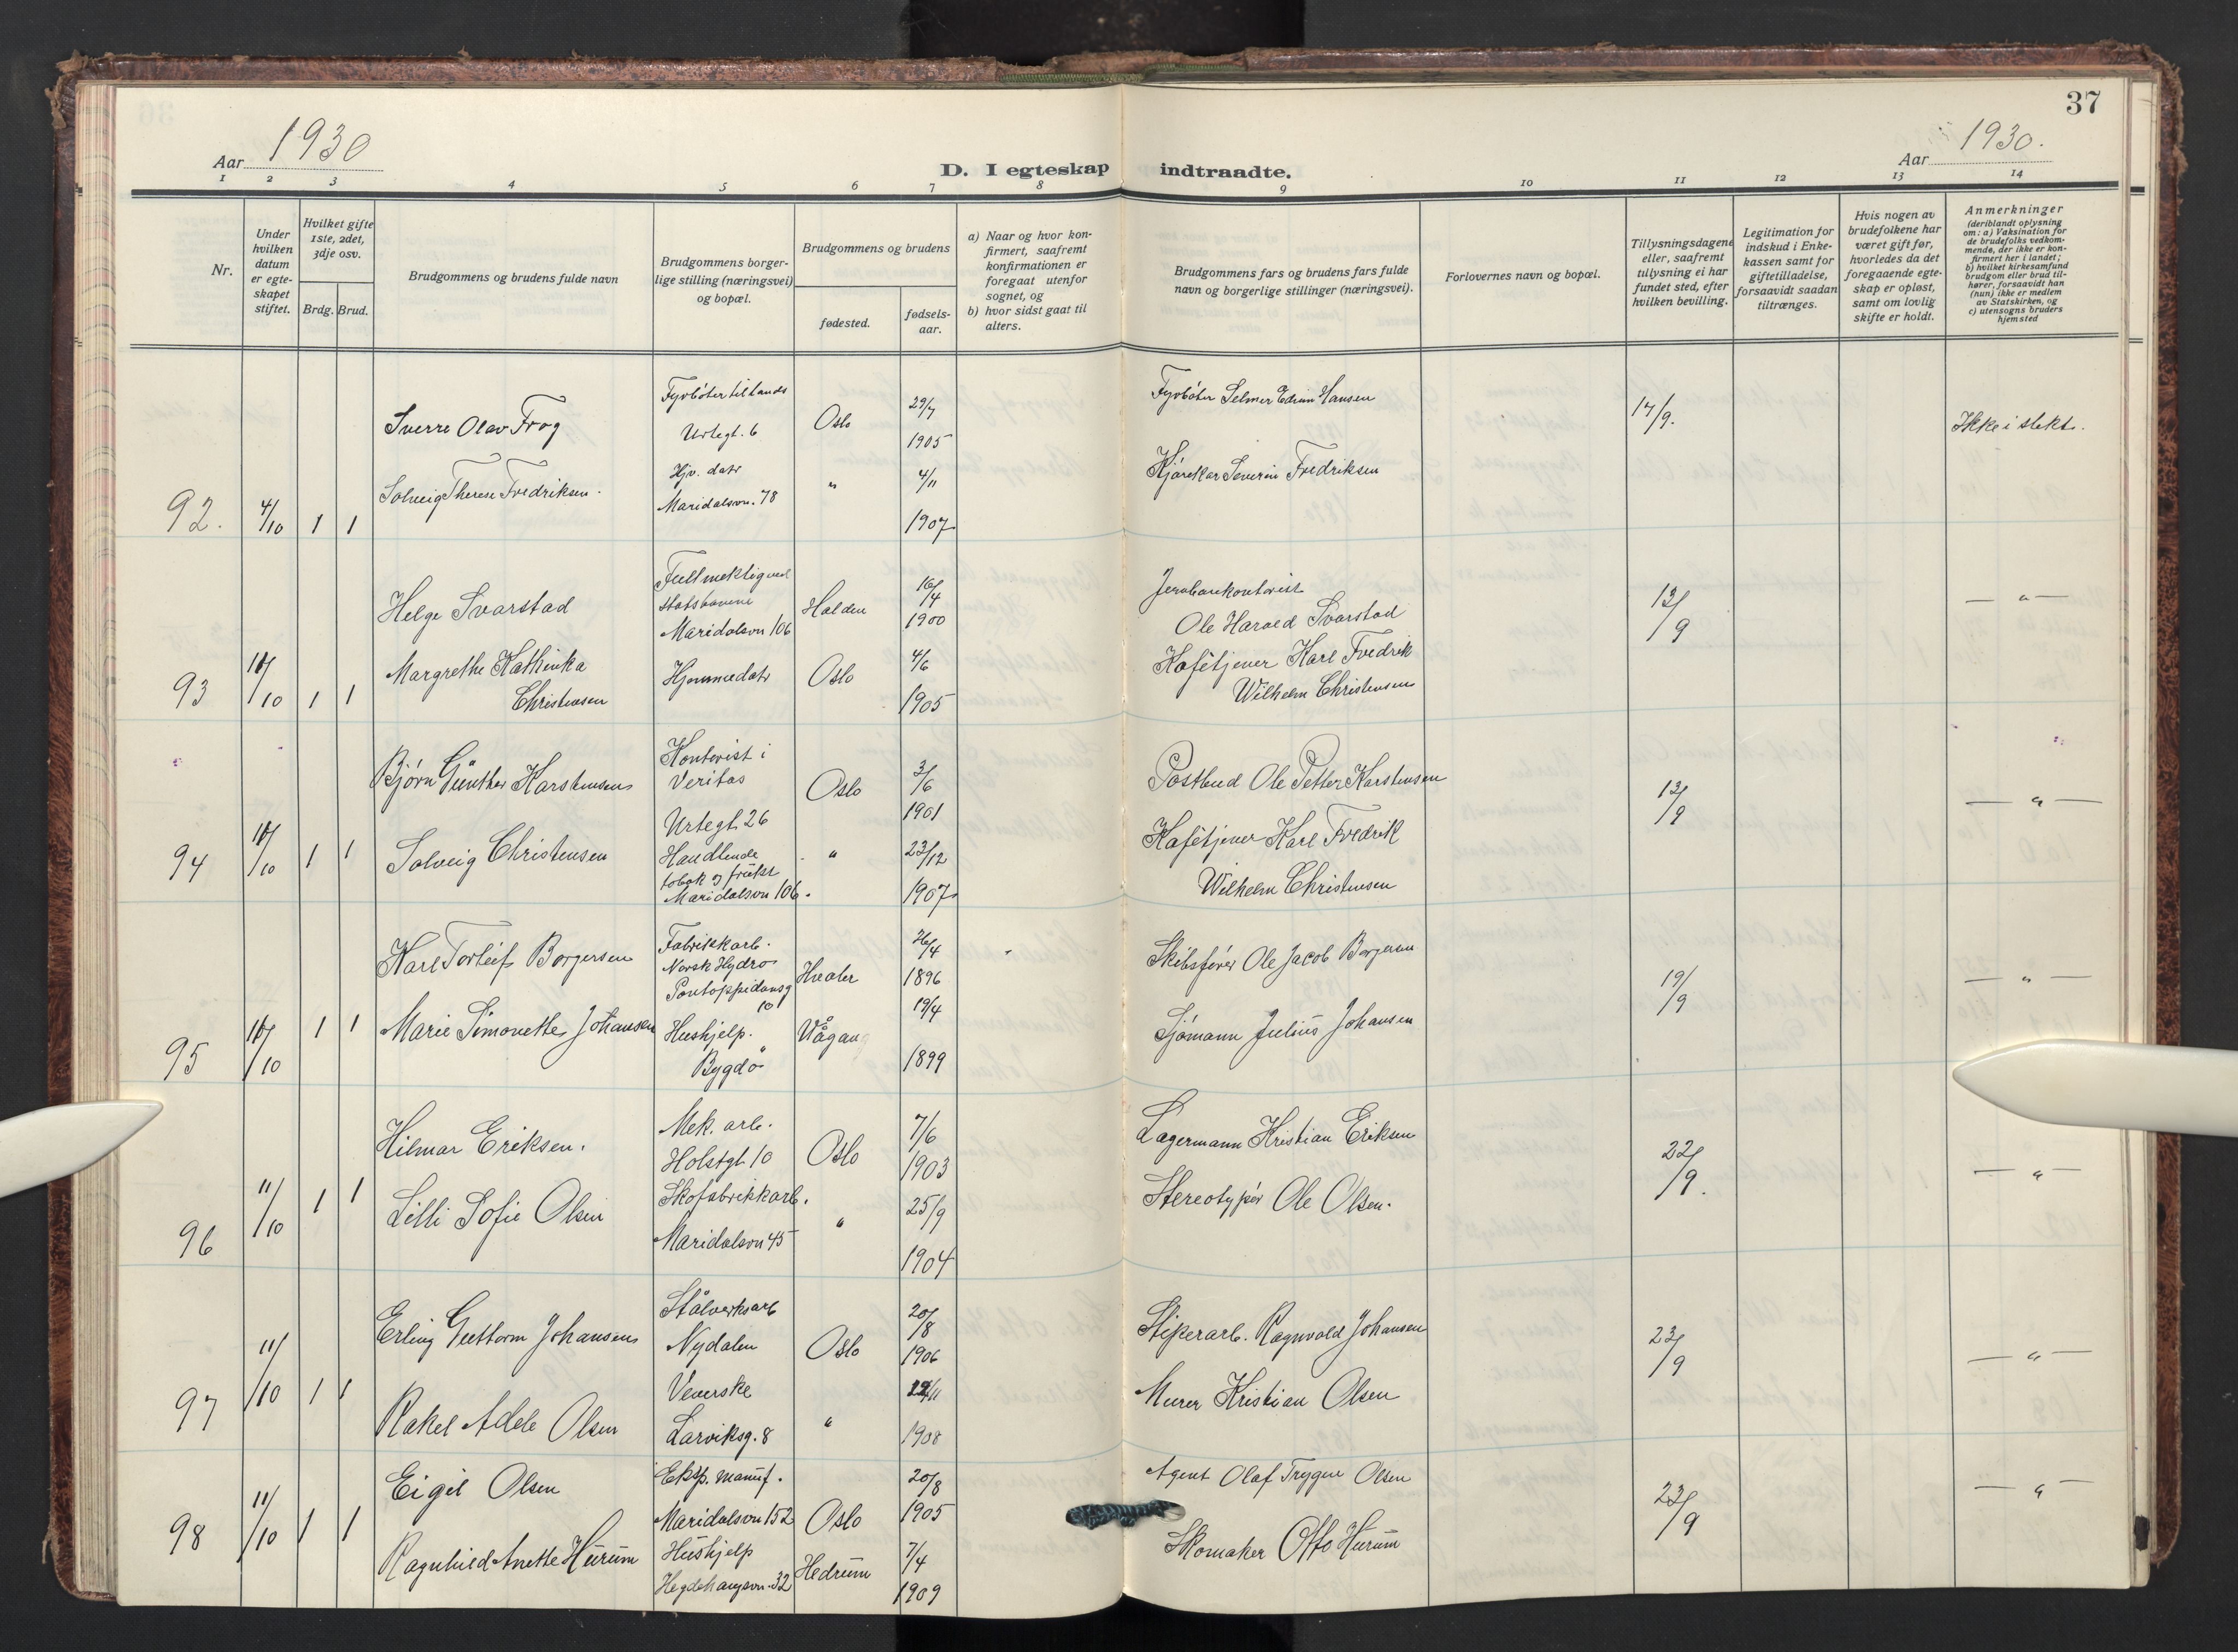 37
Aar 1930
D. I egteskap indtraadte.
Aar 1930.
1 2 3 4 5 6 7 8 9 10 11 12 13 14
Nr.
Under hvilken datum er egteskapet stiftet.
Hvilket gifte 1ste, 2det, 3dje osv.
Brdg. Brud.
Brudgommens og brudens fulde navn
Brudgommens borgerlige stilling (næringsvei) og bopæl.
Brudgommens og brudens
fødested.
fødselsaar.
a) Naar og hvor konfirmert, saafremt konfirmationen er foregaat utenfor sognet, og
b) hvor sidst gaat til alters.
Brudgommens fars og brudens fars fulde navn og borgerlige stillinger (næringsvei).
Forlovernes navn og bopæl.
Tillysningsdagene eller, saafremt tillysning ei har fundet sted, efter hvilken bevilling.
Legitimation for indskud i Enkekassen samt for giftetilladelse, forsaavidt saadan tiltrænges.
Hvis nogen av brudefolkene har været gift før, hvorledes da det foregaaende egteskap er opløst, samt om lovlig skifte er holdt.
Anmerkninger
(deriblandt oplysning om: a) Vaksination for de brudefolks vedkommende, der ikke er konfirmert her i landet;
b) hvilket kirkesamfund brudgom eller brud tilhører, forsaavidt han (hun) ikke er medlem av Statskirken, og
c) utensogns bruders hjemsted
92. 4/10 1 1
Sverre Olav Frog
Fyrbøter til lands
Urtegt. 6
Oslo
29/7
1905
Fyrbøter Selmer Edvin Hansen
17/9.
Ikke i slekt.
Solveig Therese Fredriksen.
Hjv. datr
Maridalsvn. 78
"
4/11
1907
Kjørekar Severin Fredriksen
93 10/10 1 1
Helge Svarstad
Fullmektig ved
Statsbanene
Maridalsvn 106
Halden
16/4
1900
Jernbanekontorist
Ole Harald Svarstad
13/9
— " —
Margrethe Kathinka
Christensen
Hjemmedatr
Oslo
4/6
1905
Kafétjener Karl Fredrik
Wilhelm Christensen
94 10/10 1 1
Bjørn Günther Karstensen
Kontorist i
Veritas
Urtegt. 26
Oslo
3/6
1901
Postbud Ole Petter Karstensen
13/9
— " —
Solveig Christensen
Handlende
tobak og frukt
Maridalsvn 106.
"
23/12
1907
Kafétjener Karl Fredrik
Wilhelm Christensen
95 10/10 1 1
Karl Torleif Borgersen
Fabrikkarb.
Norsk Hydro
Pontoppidansg
10
Hvaler
26/4
1896
Skibsfører Ole Jacob Borgersen
19/9
— " —
Marie Simonette Johansen
Hushjelp.
Bygdø
Vågan
19/4
1899
Sjømann Julius Johansen
96 11/10 1 1
Hilmar Eriksen.
Mek. arb.
Holstgt. 10
Oslo
7/6
1903
Lagermann Kristian Eriksen
22/9.
— " —
Lilli Sofie Olsen
Skofabrikkarb.
Maridalsvn 45
"
25/9
1904
Stereotypør Ole Olsen.
97 11/10 1 1
Erling Guttorm Johansen
Stålverksarb
Nydalen
Oslo
20/8
1906
Slipearb. Ragnvald Johansen
23/9
— " —
Rakel Adele Olsen
Veverske
Larviksg. 8
"
1908
Murer Kristian Olsen
98 11/10 1 1
Eigil Olsen
Eksp. manuf.
Maridalsvn 152
Oslo
20/8
1905
Agent Olaf Trygve Olsen
23/9
— " —
Ragnhild Anette Hurum
Hushjelp
Hegdehaugsvn. 32
Hedrum
7/4
1909
Skomaker Otto Hurum